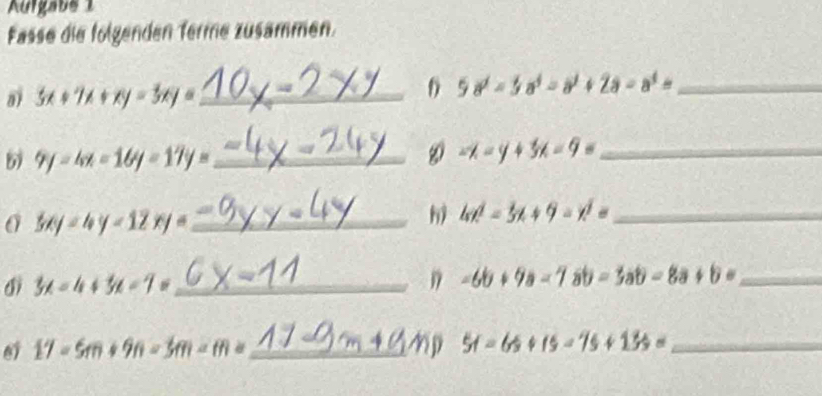 Aufgabe 1
Fasse die folgenden Terme zusammen.
a) 3x + 7x + xy - 3xy = 10x - 2xy
f) 5a² - 3a³ - a² + 2a - a³ =
b) 9y - 4x - 16y - 17y = -4x - 24y
g) -x - y + 3x - 9 =
c) 3xy - 4y - 12xy = -9xy - 4y
h) 4x² - 3x + 9 - x² =
d) 3x - 4 + 3x - 7 = 6x - 11
i) -6b + 9a - 7ab - 3ab - 8a + b =
e) 17 - 5m + 9n - 3m - m = 17 - 9m + 9n
j) 5r - 6s + rs - 7s + 13s =